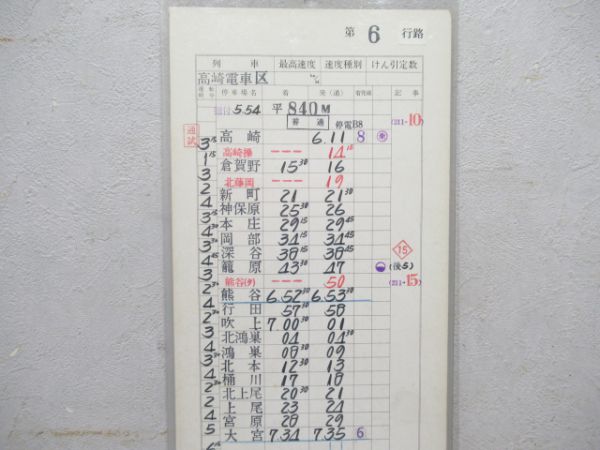 第 6 行路
列車 最高速度 速度種別 けん引定数
高崎電車区
停車場名 着 発(通) 着発線 記事
5.54 平 840M (211-10)
普通 停電B8
通試
高崎 6.11 8
3 15 高崎操 --- 14 15
1 15 倉賀野 15 30 16
3 北藤岡 --- 19
2 新町 21 21 30
4 神保原 25 30 26
3 15 本庄 29 15 29 45
岡部 34 15 34 45
深谷 38 15 38 45 15
籠原 43 30 47 (後5)
3 熊谷(タ) --- 50 (211-15)
2 30 熊谷 6.52 30 6.53 30
4 行田 57 30 58
2 30 吹上 7.00 30 01
3 北鴻巣 04 04 30
鴻巣 08 30 09
北本 12 30 13
4 桶川 17 18
2 30 北上尾 20 30 21
2 上尾 23 24
4 宮原 28 29
5 大宮 7.34 7.35 6